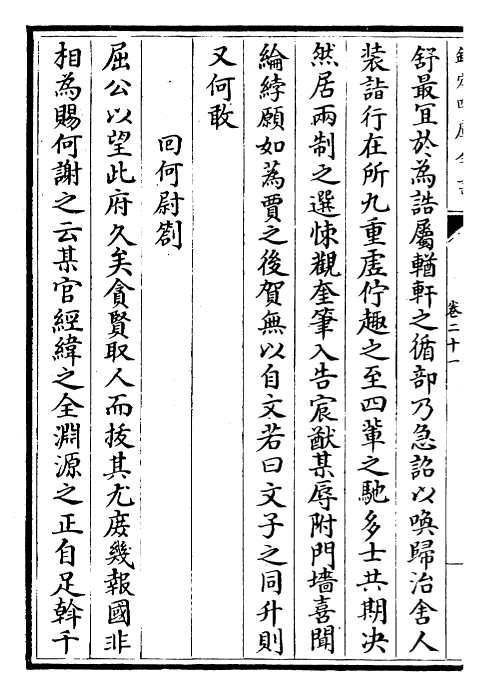 欽定四庫全書
卷二十一
舒最宜於為誥屬輶軒之循部乃急詔以喚歸治舍人
装詣行在所九重虚佇趣之至四輩之馳多士共期决
然居兩制之選悚觀奎筆入告宸猷某辱附門墻喜聞
綸綍願如蒍賈之後賀無以自文若曰文子之同升則
又何敢
回何尉劄
屈公以望此府久矣貪賢取人而拔其尤庻幾報國非
相為賜何謝之云某官經緯之全淵源之正自足斡千